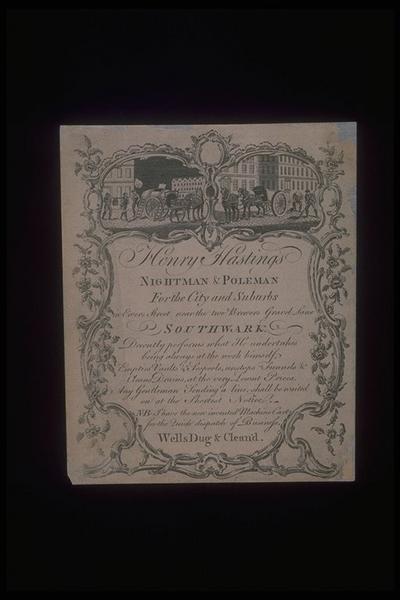 Henry Hastings
NIGHTMAN & POLEMAN
For the City and Suburbs
in Ewers Street near the two Brewers Gravel Lane
SOUTHWARK.
Decently performs what He undertakes
being always at the work himself,
Empties Vaults & Cesspools, unstops Funnels &
Cleans Drains, at the very Lowest Prices.
Any Gentleman Sending a line, shall be waited
on at the Shortest Notice.
NB. I have the new invented Machine Carts
for the Quick dispatch of Business.
Wells Dug & Clean'd.